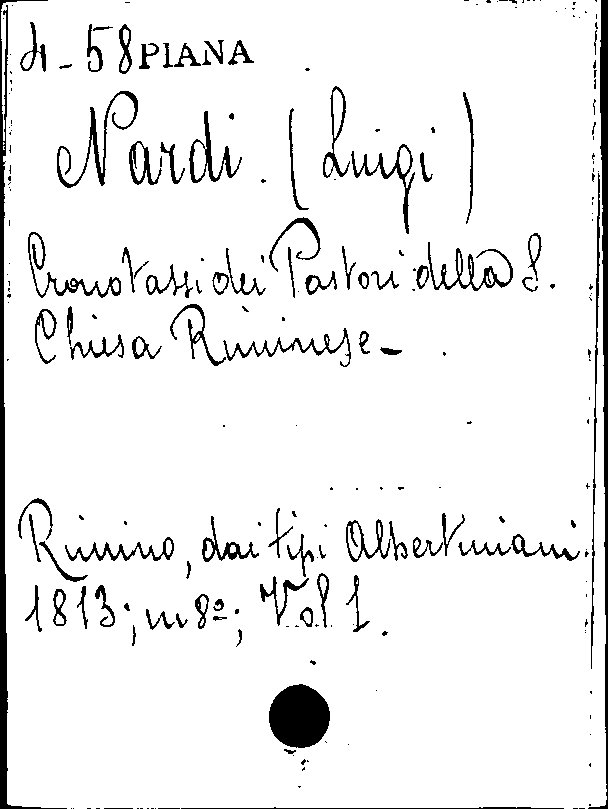 4-58 PIANA
Nardi. (Luigi)
Cronotassi dei Pastori della S.
Chiesa Riminese -
Rimino, dai tipi Albertiniani.
1813; in 8º; Vol 1.